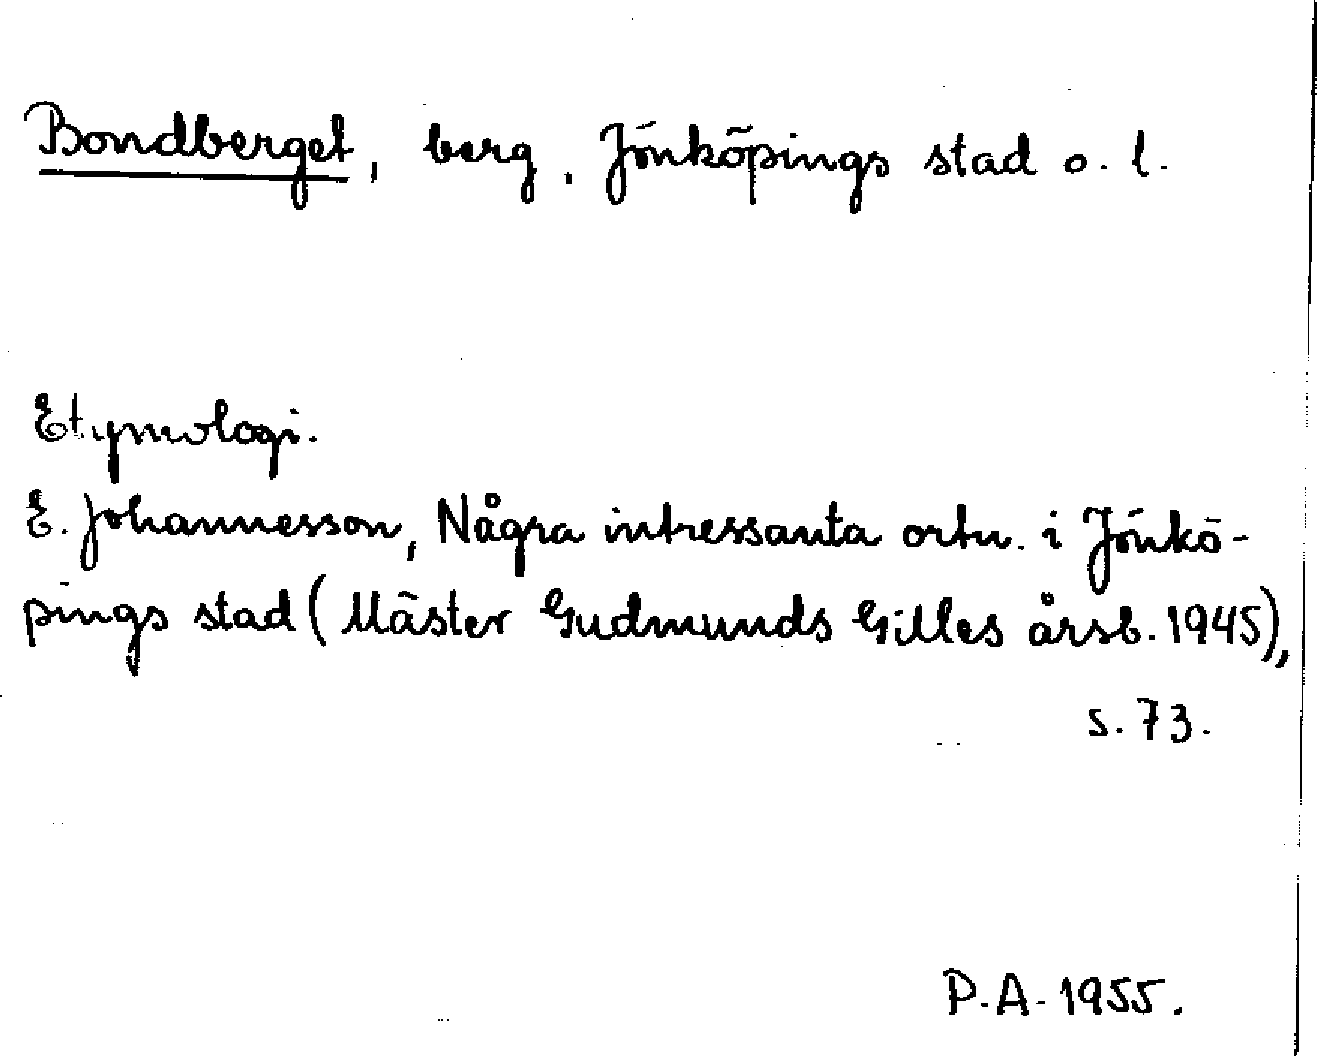 Bondberget, berg, Jönköpings stad o. l.
Etymologi.
E. Johannesson, Några intressanta ortn. i Jönkö-
pings stad (Mäster Gudmunds Gilles årsb. 1945),
s. 73.
P. A. 1955.